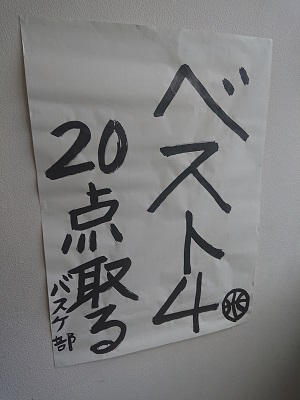 ベスト4
20点取る
バスケ部